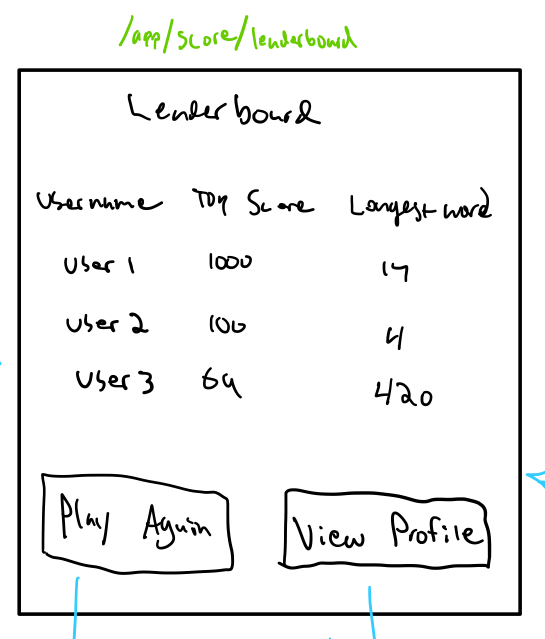 /app/score/leaderboard
Leaderboard
Username Top Score Longest word
User 1 1000 14
User 2 100 4
User 3 69 420
Play Again View Profile